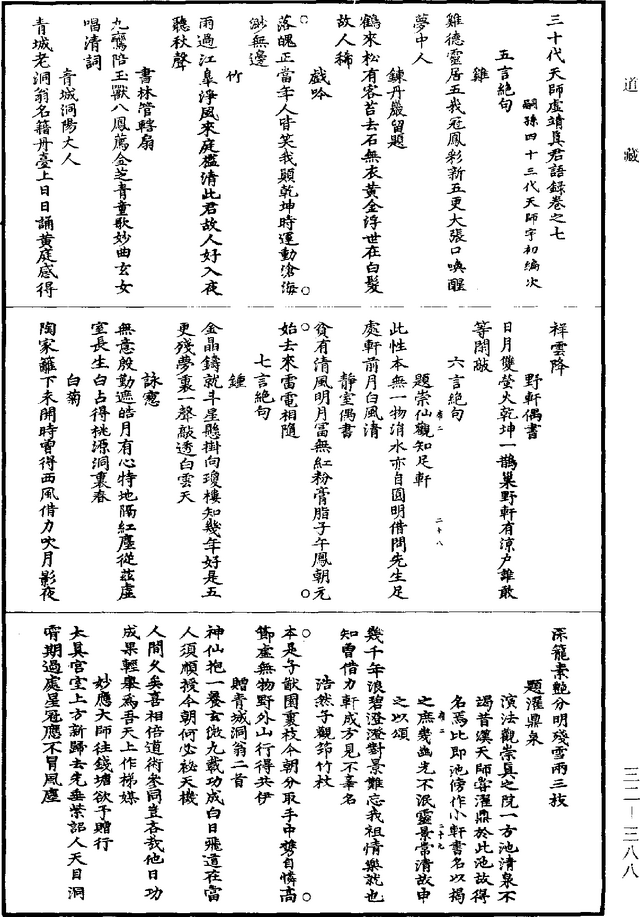 道藏
三十代天師虛靖真君語錄卷之七
嗣孫四十三代天師宇初編次
五言絕句
雞
雞德靈居五我冠鳳彩新五更大張口喚醒
夢中人
鍊丹巖留題
鶴來松有客苔去石無衣黃金浮世在白髮
故人稀
戲吟
落魄正當年人皆笑我顛乾坤時運動滄海
渺無邊
竹
雨過江皐淨風來庭檻清此君故人好入夜
聽秋聲
書林管轄扇
九鸞陪玉獸八鳳薦金芝青童歌妙曲玄女
唱清詞
青城洞陽大人
青城老洞翁名籍丹臺上日日誦黃庭感得
祥雲降
野軒偶書
日月雙螢火乾坤一鵲巢野軒有涼户誰敢
等閑敲
六言絕句
題崇仙觀知足軒
此性本無一物消水亦自圓明借問先生足
處軒前月白風清
靜室偶書
貧有清風明月富無紅粉膏脂子午鳳朝元
始去來雷電相隨
七言絕句
鍾
金晶鑄就斗星懸掛向瓊樓知幾年好是五
更殘夢裏一聲敲透白雲天
詠窻
無意慇勤遮皓月有心特地隔紅塵從茲虛
室長生白占得桃源洞裏春
白菊
陶家籬下未開時曾得西風借力吹月影夜
深籠素艷分明殘雪兩三枝
題濯鼎泉
演法觀崇真之院一方池清泉不
竭昔漢天師客濯鼎於此池故得
名焉比即池傍作小軒書名以揭
之庶幾幽光不泯靈景常清故申
之以頌
幾千年浪碧澄澄對景難忘我祖情樂就也
知曾借力軒成方見不辜名
浩然子觀筇竹杖
本是予猷園裏枝今朝分取手中攜自憐高
節虛無物野外山行得共伊
贈青城洞翁二首
神仙抱一養玄微九載功成白日飛道在當
人須順授今朝何必祕天機
人間久矣喜相倍道術參同豈吝哉他日功
成果輕舉為吾天上作梯媒
妙應大師往錢塘欲予贈行
太真宮室上方新歸去先垂紫詔人天目洞
霄期過處星冠應不冒風塵
三二—三八八